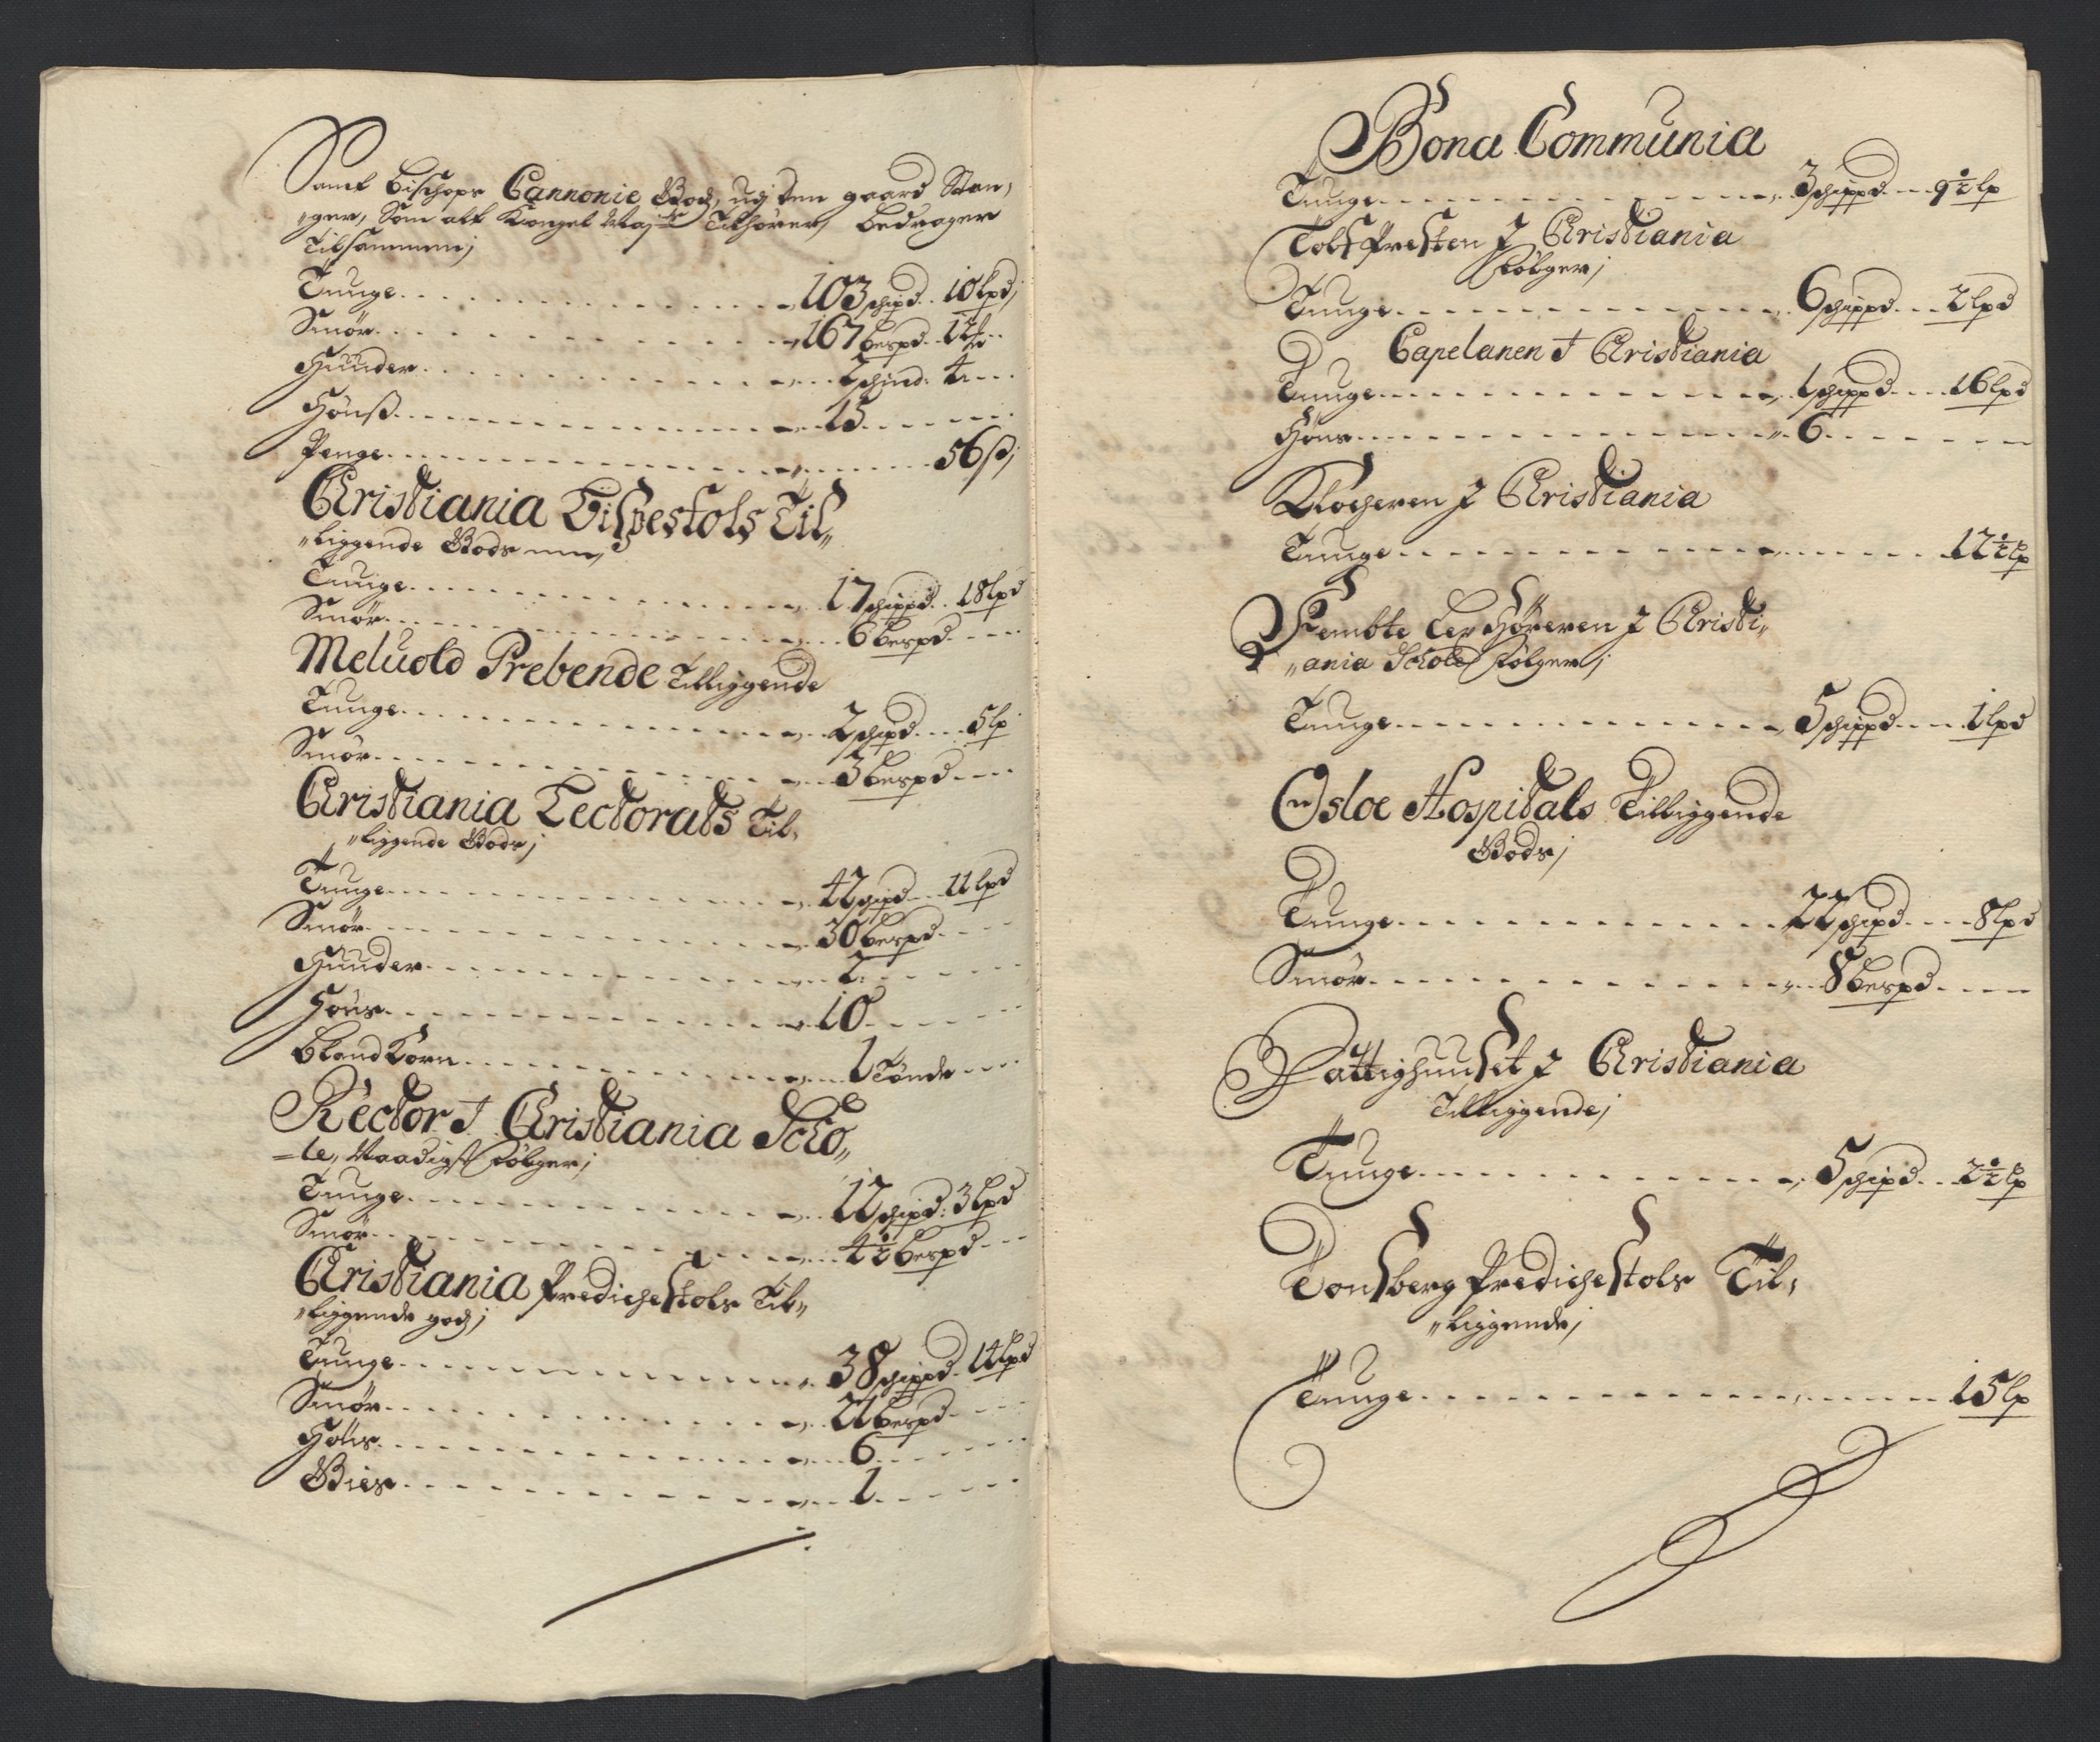 Samt Bischops Cannonie Gods, udj den gaard Stan,
"ger, Som alt Kongel May:tt Tilhører, bedrager
Tilsammen;
Tunge 103 schipd 10 lpd;
Smør 167 bespd 12
Huuder 2 schind: 4
Hönß 15
Penge 56 ß;
Christiania Bispestols Til„
„liggende Gods
Tunge 17 schippd 18 lpd
Smør 6 bespd
Meluold Prebende Tilliggende
Tunge 2 schipd 5 lp
Smör 3 bespd
Christiania Lectorats Til,
„liggende Gods;
Tunge 42 schipd 11 lpd
Smør 30 bespd
Huuder 2
Höns 10
bland Korn 1 Tønde
Rector I Christiania Scho„
=le, Naadigst følger;
Tunge 12 schipd: 3 lpd
Smør 4½ bespd
Christiania Predichestols Til„
„liggende gods;
Tunge 38 schippd 14 lpd
Smør 21 bespd
Höns 6
Gies 1
Bona Communia
Tunge 3 schippd 9½ lp
Tolfpresten I Christiania
følger;
Tunge 6 schippd 2 lpd
Capelanen I Christiania
Tunge 1 schippd 16 lpd
Höns 6
Klocheren I Christiania
Tunge 12½ lp
Fembte Lexhøreren I Christi„
„ania Schole følger;
Tunge 5 schippd 1 lpd
Osloe Hospitals Tilliggende
Gods;
Tunge 22 schipd 8 lpd
Smör 8 bespd
Fattighuuset I Christiania
Tilliggende;
Tunge 5 schipd 2½ lp
Tonsberg Predichestols Til,
„liggende;
Tunge 15 lp